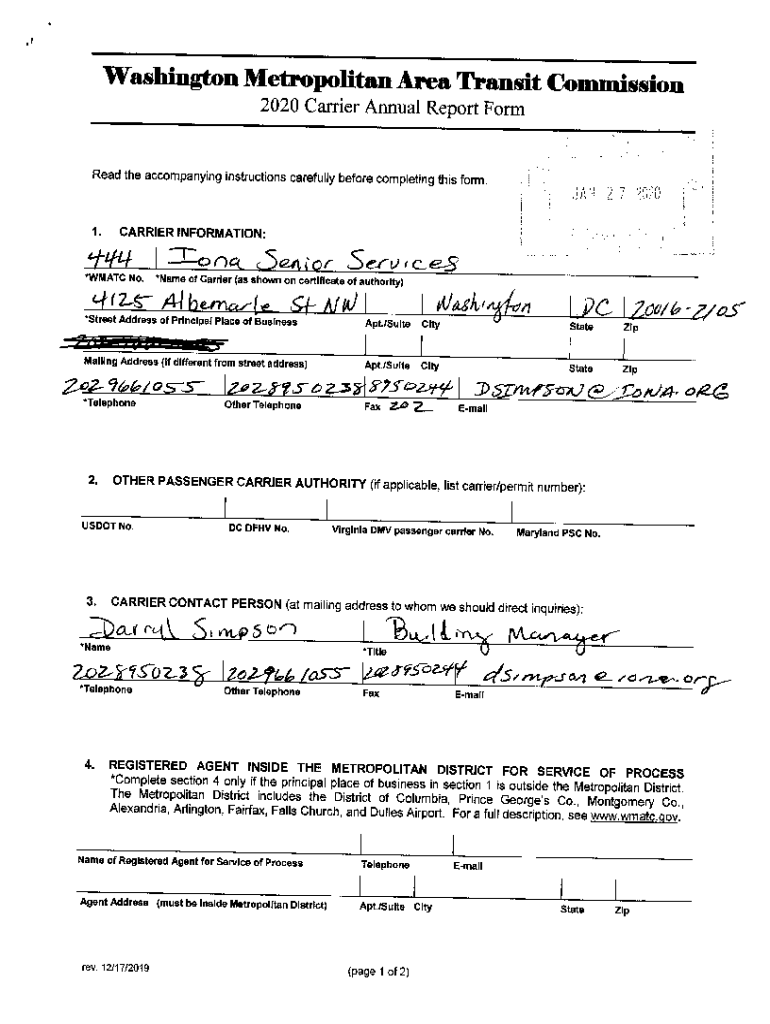 Washington Metropolitan Area Transit Commission
2020 Carrier Annual Report Form
Read the accompanying instructions carefully before completing this form.
JAN 27 2020
1. CARRIER INFORMATION:
444 Iona Senior Services
*WMATC No. *Name of Carrier (as shown on certificate of authority)
4125 Albemarle St NW Washington DC 20016-2105
*Street Address of Principal Place of Business Apt./Suite City State Zip
Mailing Address (if different from street address) Apt./Suite City State Zip
2029661055 2028950238 8950244 DSIMPSON@IONA.ORG
*Telephone Other Telephone Fax 202 E-mail
2. OTHER PASSENGER CARRIER AUTHORITY (if applicable, list carrier/permit number):
USDOT No. DC DFHV No. Virginia DMV passenger carrier No. Maryland PSC No.
3. CARRIER CONTACT PERSON (at mailing address to whom we should direct inquiries):
Darryl Simpson Building Manager
*Name *Title
2028950238 2029661055 2028950244 dsimpson@iona.org
*Telephone Other Telephone Fax E-mail
4. REGISTERED AGENT INSIDE THE METROPOLITAN DISTRICT FOR SERVICE OF PROCESS
*Complete section 4 only if the principal place of business in section 1 is outside the Metropolitan District.
The Metropolitan District includes the District of Columbia, Prince George's Co., Montgomery Co.,
Alexandria, Arlington, Fairfax, Falls Church, and Dulles Airport. For a full description, see www.wmatc.gov.
Name of Registered Agent for Service of Process Telephone E-mail
Agent Address (must be inside Metropolitan District) Apt./Suite City State Zip
rev. 12/17/2019 (page 1 of 2)